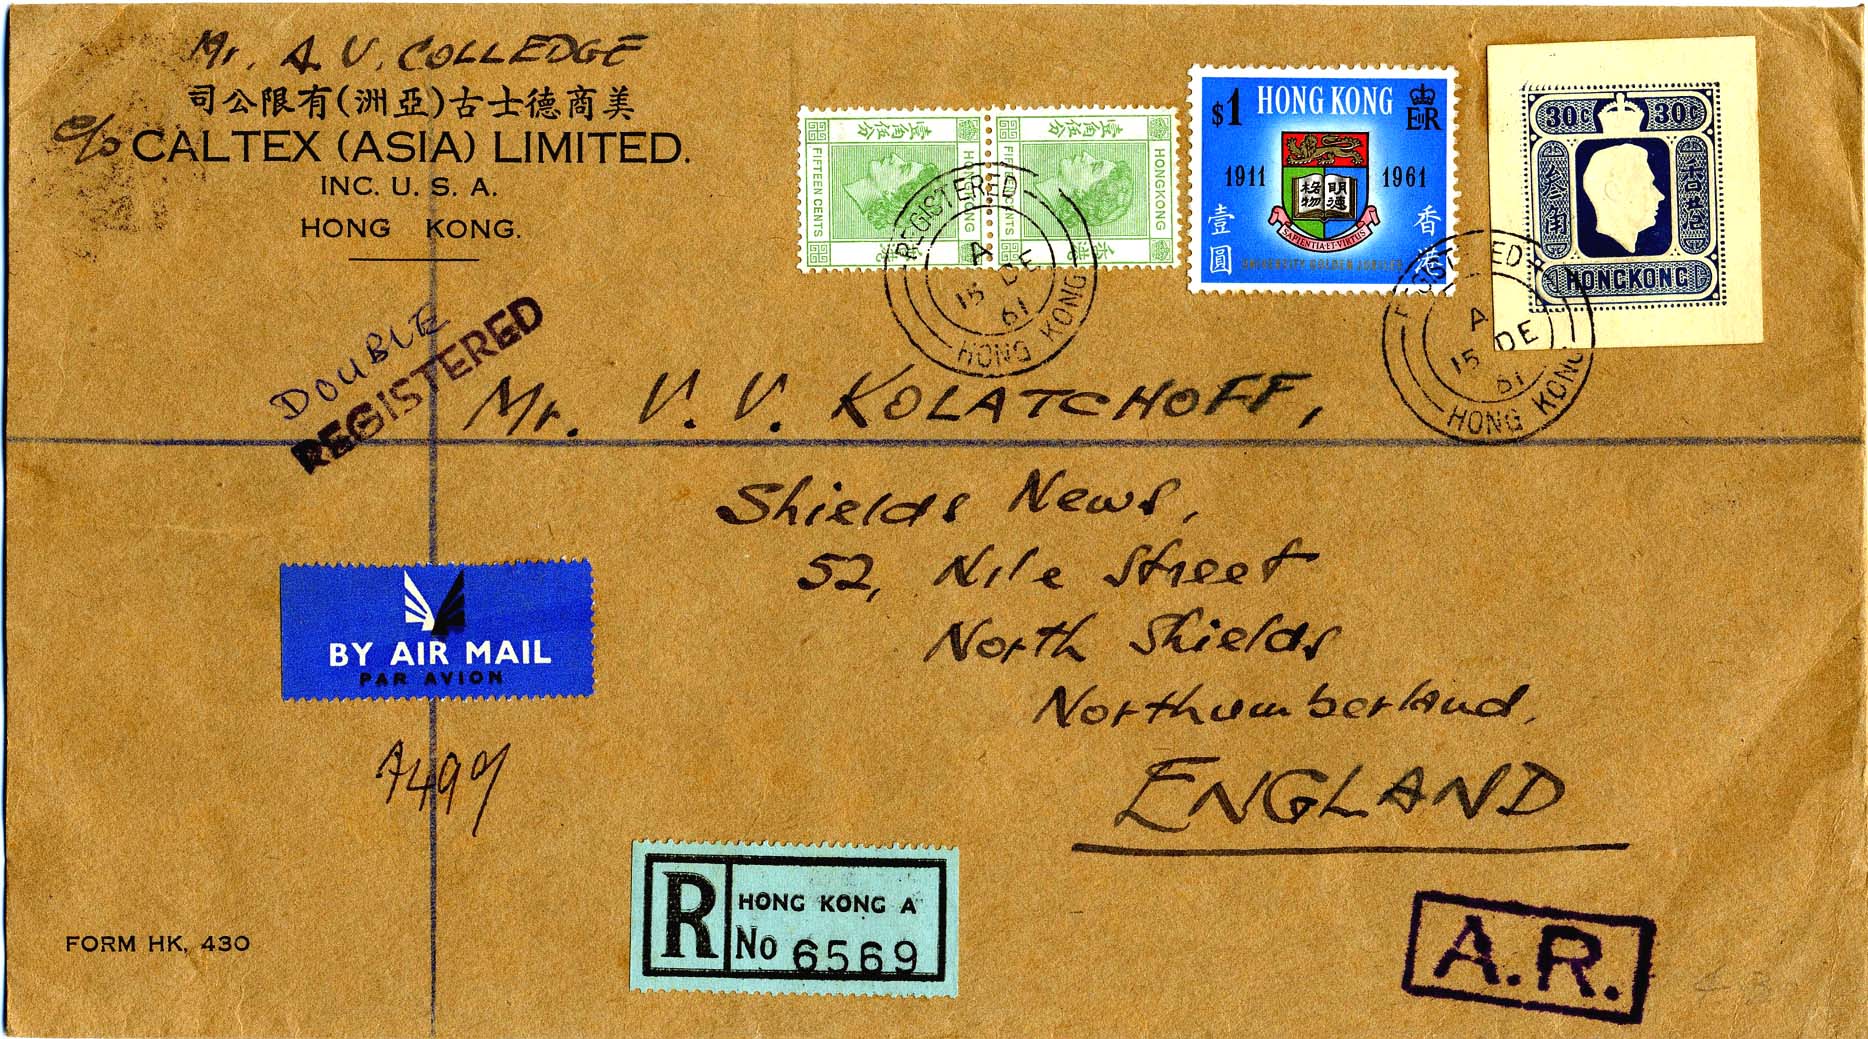 Mr. A. V. COLLEDGE
司公限有(洲亞)古士德商美
c/o CALTEX (ASIA) LIMITED.
INC. U. S. A.
HONG KONG.
DOUBLE
REGISTERED
壹角伍分
FIFTEEN CENTS
HONGKONG
壹角伍分
FIFTEEN CENTS
HONGKONG
香港
$1 HONG KONG EIIR
1911 1961
明德
格物
SAPIENTIA ET VIRTUS
壹圓
香港
UNIVERSITY GOLDEN JUBILEE
30C 30C
HONGKONG
REGISTERED
A
15 DE
61
HONG KONG
REGISTERED
A
15 DE
61
HONG KONG
Mr. V. V. KOLATCHOFF,
Shields News,
52, Nile Street
North Shields
Northumberland,
ENGLAND
BY AIR MAIL
PAR AVION
A499
R HONG KONG A
No 6569
A.R.
FORM HK, 430